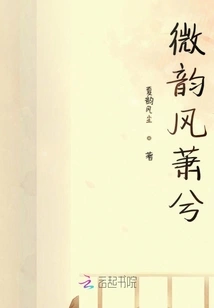 微韵风萧兮
夏韵风尘
著
云起书院